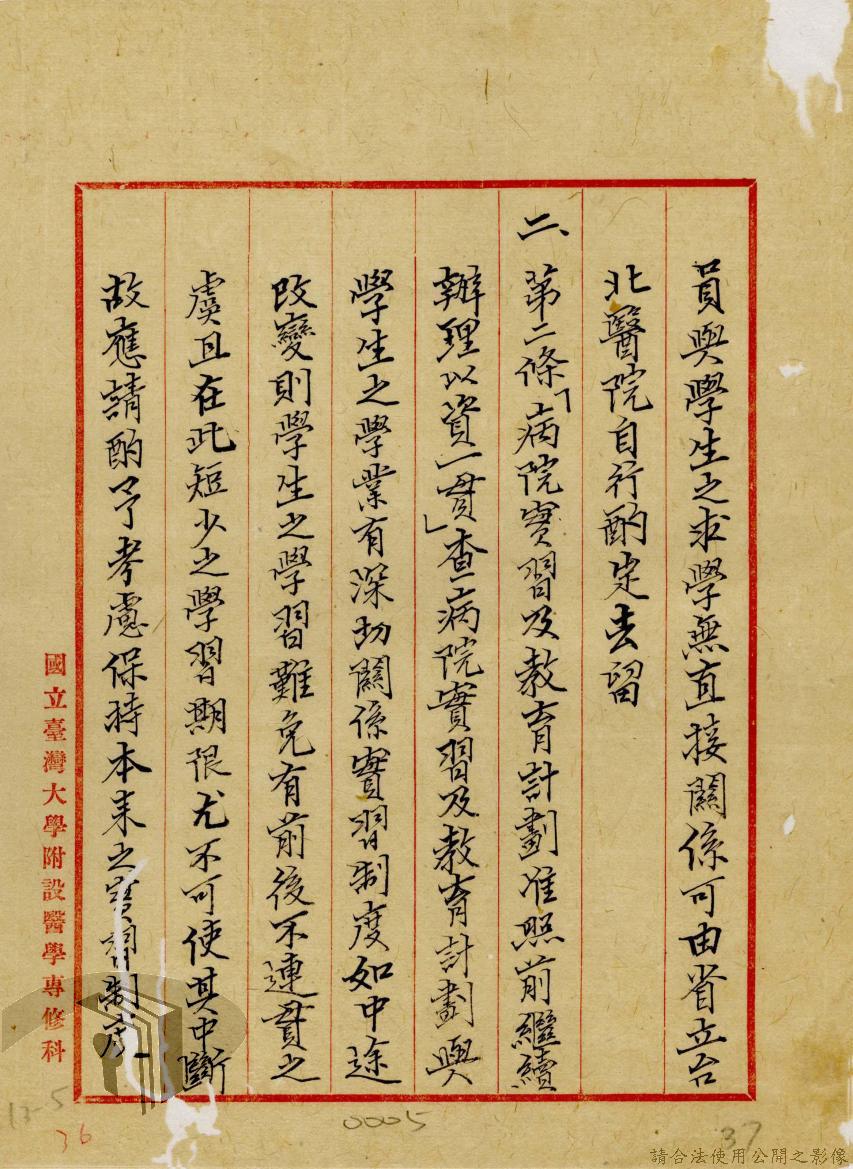 員與學生之求學無直接關係可由省立台
北醫院自行酌定去留
二、第二條「病院實習及教育計劃准照前繼續
辦理以資一貫」查病院實習及教育計劃與
學生之學業有深切關係實習制度如中途
改變則學生之學習難免有前後不連貫之
虞且在此短少之學習期限尤不可使其中斷
故應請酌予考慮保持本来之實習制度
國立臺灣大學附設醫學專修科
13-5
36
0005
37
請合法使用公開之影像